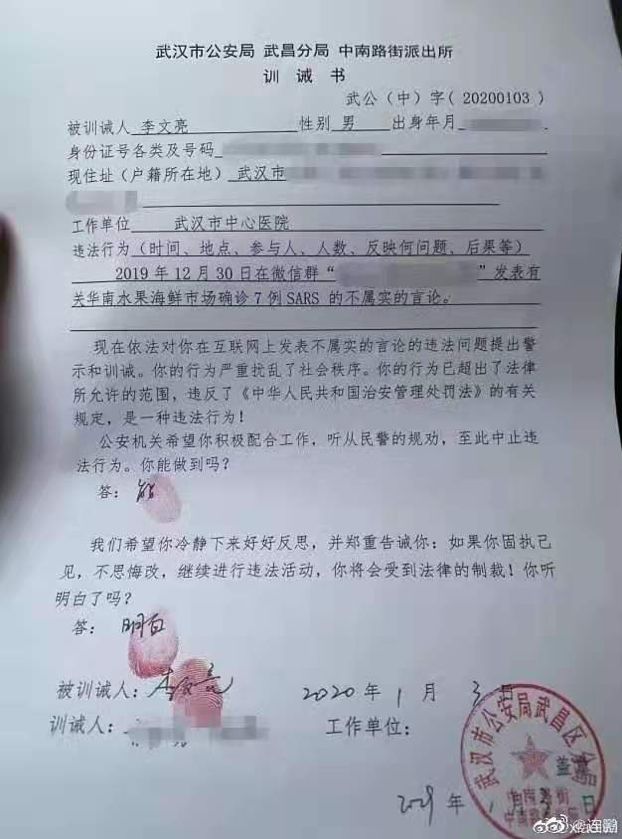 武汉市公安局 武昌分局 中南路街派出所
训 诫 书
武公（中）字（20200103）
被训诫人 李文亮 性别 男 出身年月
身份证号各类及号码
现住址（户籍所在地） 武汉市
工作单位 武汉市中心医院
违法行为（时间、地点、参与人、人数、反映何问题、后果等）
2019年12月30日在微信群“ ”发表有
关华南水果海鲜市场确诊7例SARS的不属实的言论。
现在依法对你在互联网上发表不属实的言论的违法问题提出警
示和训诫。你的行为严重扰乱了社会秩序。你的行为已超出了法律
所允许的范围，违反了《中华人民共和国治安管理处罚法》的有关
规定，是一种违法行为！
公安机关希望你积极配合工作，听从民警的规劝，至此中止违
法行为。你能做到吗？
答： 能
我们希望你冷静下来好好反思，并郑重告诫你：如果你固执己
见，不思悔改，继续进行违法活动，你将会受到法律的制裁！你听
明白了吗？
答： 明白
被训诫人：李文亮 2020年1月3日
训诫人： 工作单位：
武汉市公安局武昌区分局
中南路街
年 月 日